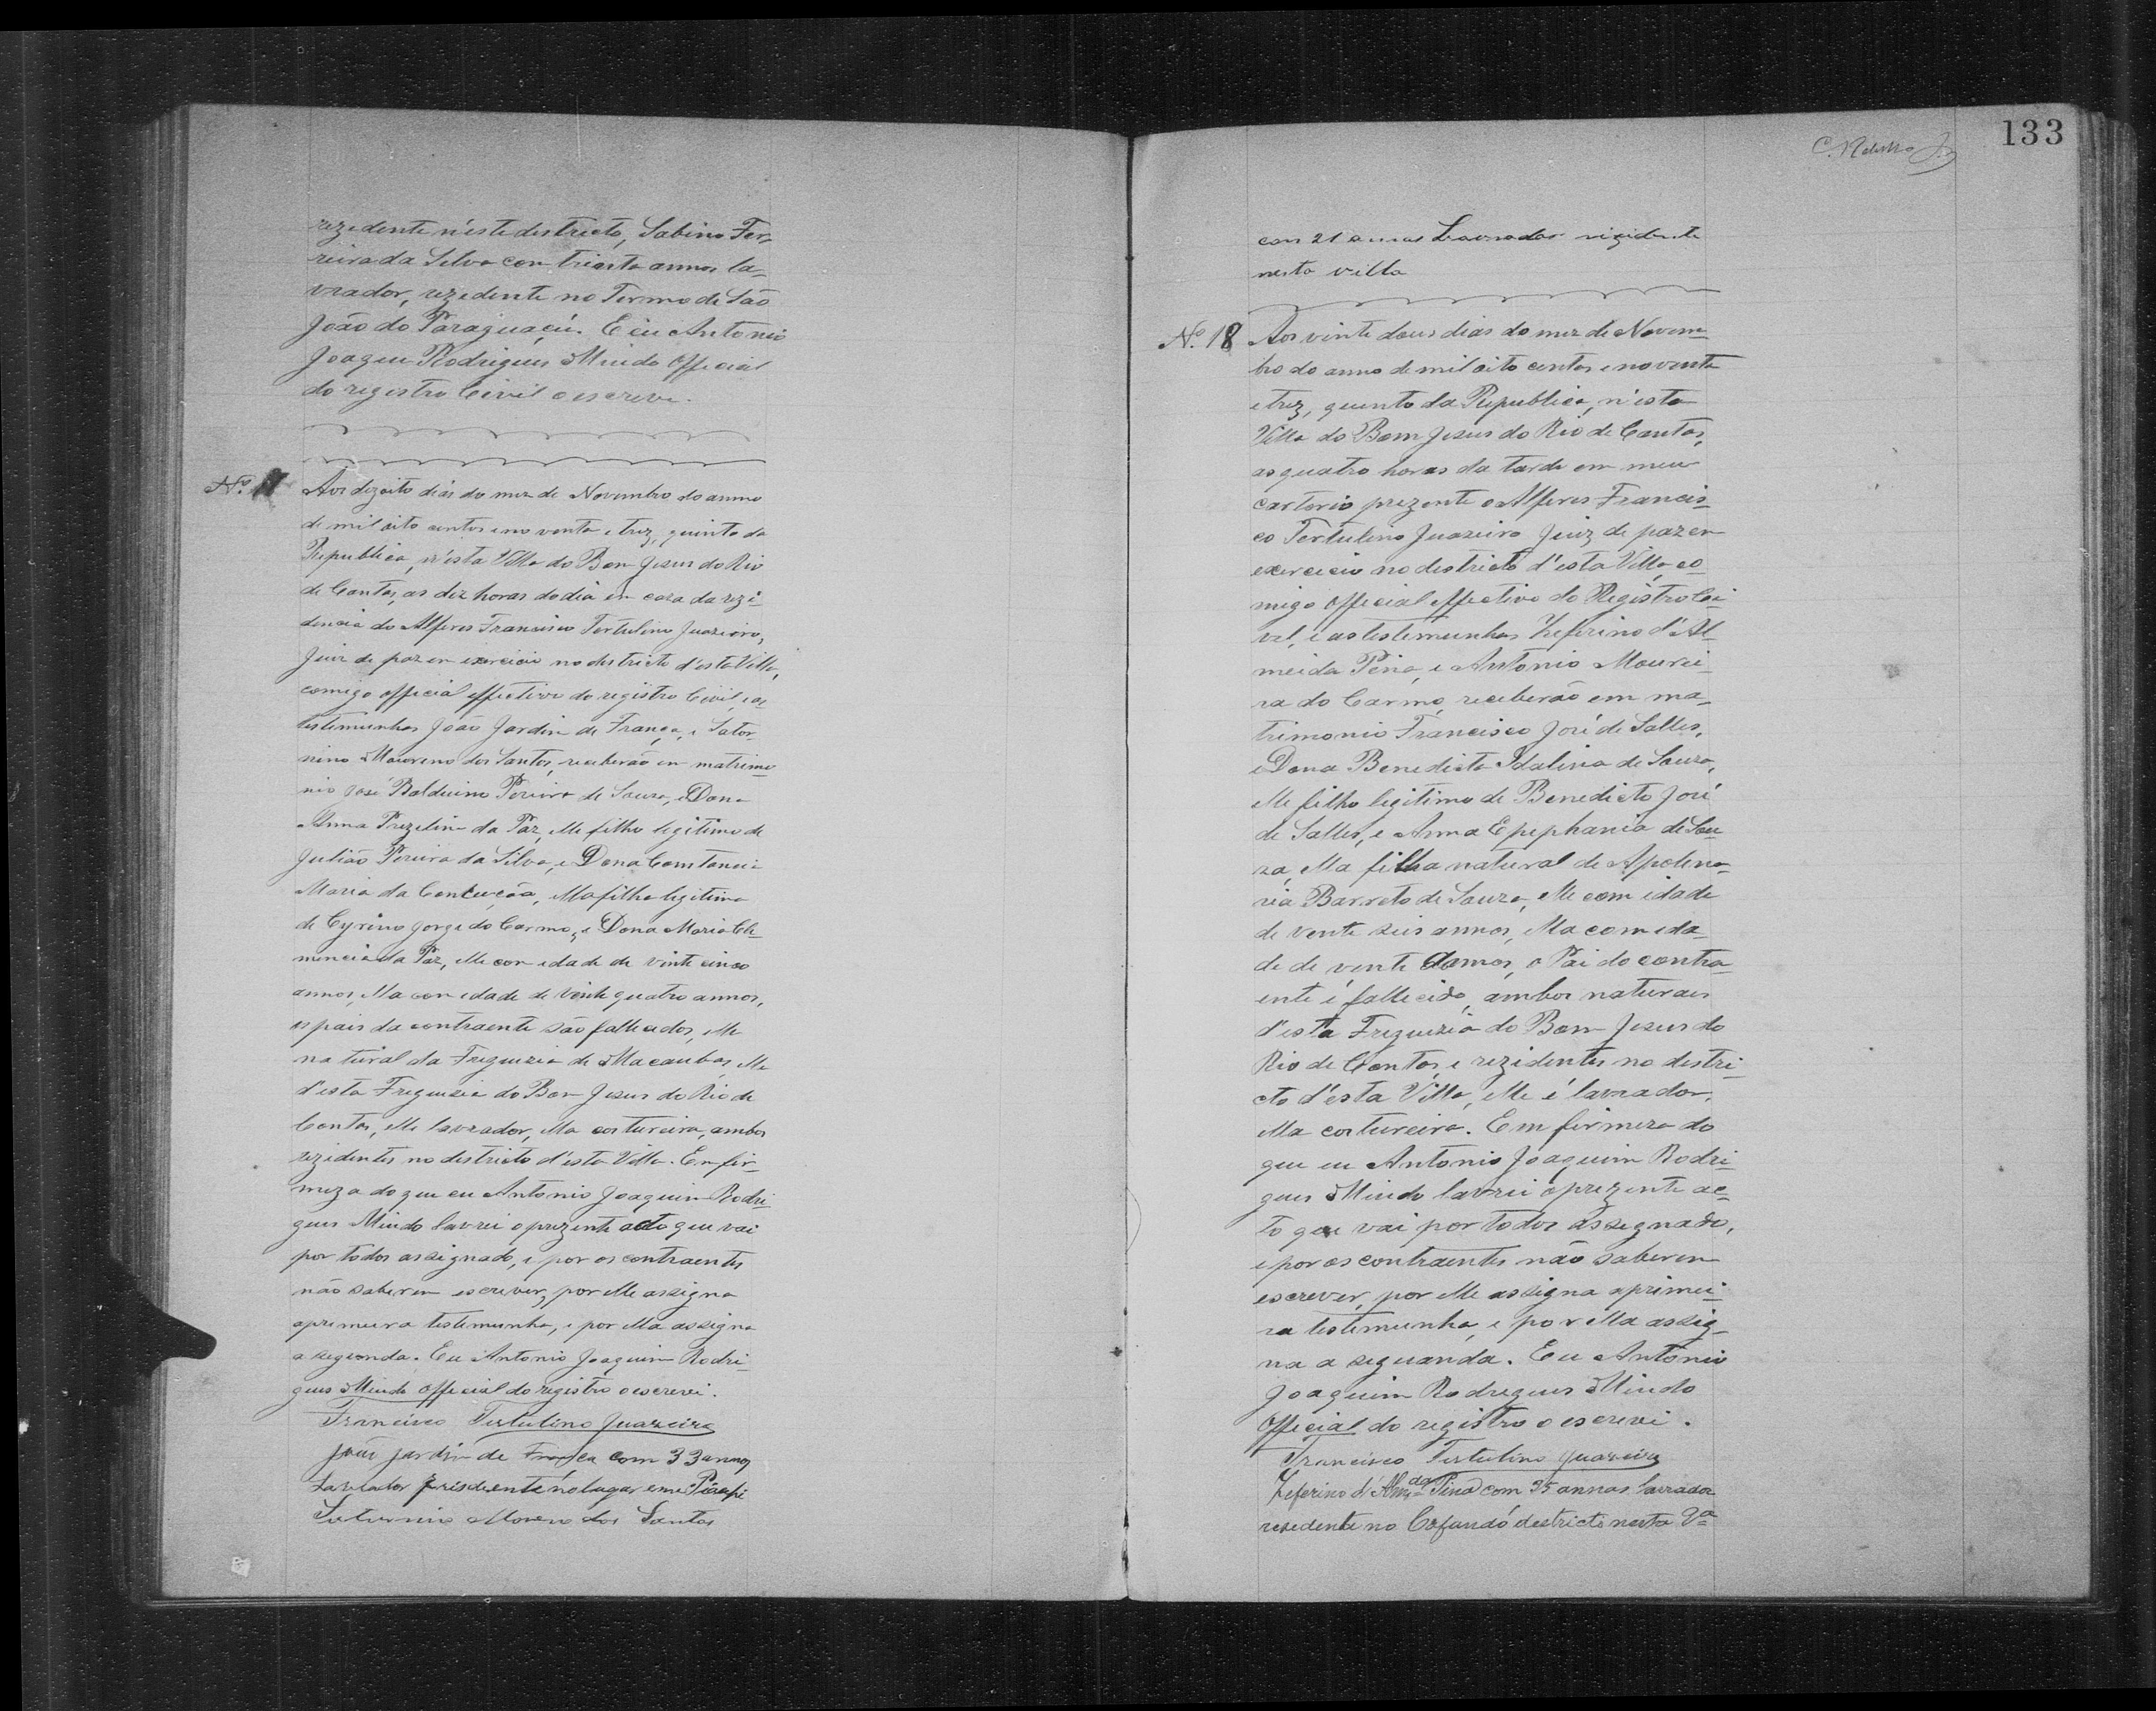 rezedente n'este destricto, Sabino Fer,
reira da Silva con trinta annos la-
vrador, rezedente no Termo de São
João do Paraguaçú. E eu Antonio
Joaquin Rodrigues Mindo Official
do registro Civil o escrevi.
Nº.
Aos dezoito dias do mez de Novembro do anno
de mil oito centos e noventa e trez, quinto da
Republica, n'esta Villa do Bom Jesus do Rio
de Contas, as dez horas do dia em caza da rezi-
dencia do Alferes Francisco Tertulino Juazeiro,
Juiz de paz en exercicio no destricto d'esta Villa,
comigo official effectivo do registro Civil, e as
testemunhas João Jardin de França, e Sator-
nino Moureno dos Santos, receberão en matrimo-
nio José Balduino Pereira de Souza, e Dona
Anna Prezelina da Páz, elle filho legitimo de
Julião Pereira da Silva, e Dona Constancia
Maria da Conceução, ella filha legitima
de Cyrino Jorge do Carmo, e Dona Maria Cle-
mencia da Páz, elle con edade de vinte cinco
annos, ella con edade de vinte quatro annos,
os pais da contraente são fallecidos, elle
natural da Freguezia de Macaubas, ella
d'esta Freguezia do Bom Jesus do Rio de
Contas, elle lavrador, ella costureira, ambos
rezidentes no destricto d'esta Villa. En fir-
meza do que eu Antonio Joaquin Rodri-
gues Mindo lavrei o prezente acto que vai
por todos assignado, e por os contraentes
não saberen escrever, por elle assigna
a primeira testemunha, e por ella assigna
a segunda. Eu Antonio Joaquin Rodri-
gues Mindo official do registro o escrevi.
Francisco Tertulino Juazeiro
João jardin de França com 33 annos
Lavrador risidente no lugar
Saturnino Moreno dos Santos
133
con 21 annos Lavrador rizidente
nesta villa
Nº. 18 Aos vinte dous dias do mez de Novem-
bro do anno de mil oito centos e noventa
e trez, quinto da Republica, n'esta
Villa do Bom Jesus do Rio de Contas,
as quatro horas da tarde em meu
cartorio prezente o Alferes Francis-
co Tertulino Juazeiro Juiz de paz en
exercicio no destricto d'esta Villa, co-
migo official effectivo do Registro Ci-
vil, e as testemunhas Zeferino d'Al-
meida Pina, e Antonio Mourei-
ra do Carmo, receberão em ma-
trimonio Francisco José de Salles,
e Dona Benedicta Idalina de Souza,
elle filho legitimo de Benedicto José
de Salles, e Anna Epephania de Sou-
za, ella filha natural de Apolina-
ria Barreto de Souza, elle com idade
de vente seis annos, ella com eda-
de de vente annos, o Pai do contra-
ente é fallecido, ambos naturaes
d'esta Freguezia do Bom Jesus do
Rio de Contas, e rezidentes no destri-
cto d'esta Villa, elle é lavrador,
ella costureira. Em firmeza do
que eu Antonio Joaquim Rodri-
gues Mindo lavrei o prezente ac-
to que vai por todos assegnado,
e por os contraentes não saberem
escrever, por elle assigna a primei-
ra testemunha, e por ella assig-
na a seguanda. Eu Antonio
Joaquim Rodregues Mindo
Official do registro o escrevi.
Francisco Tertulino Juazeiro
Zeferino d'Almda Pina com 35 annos lavrador
resedente no Cafundó destricto nesta Va